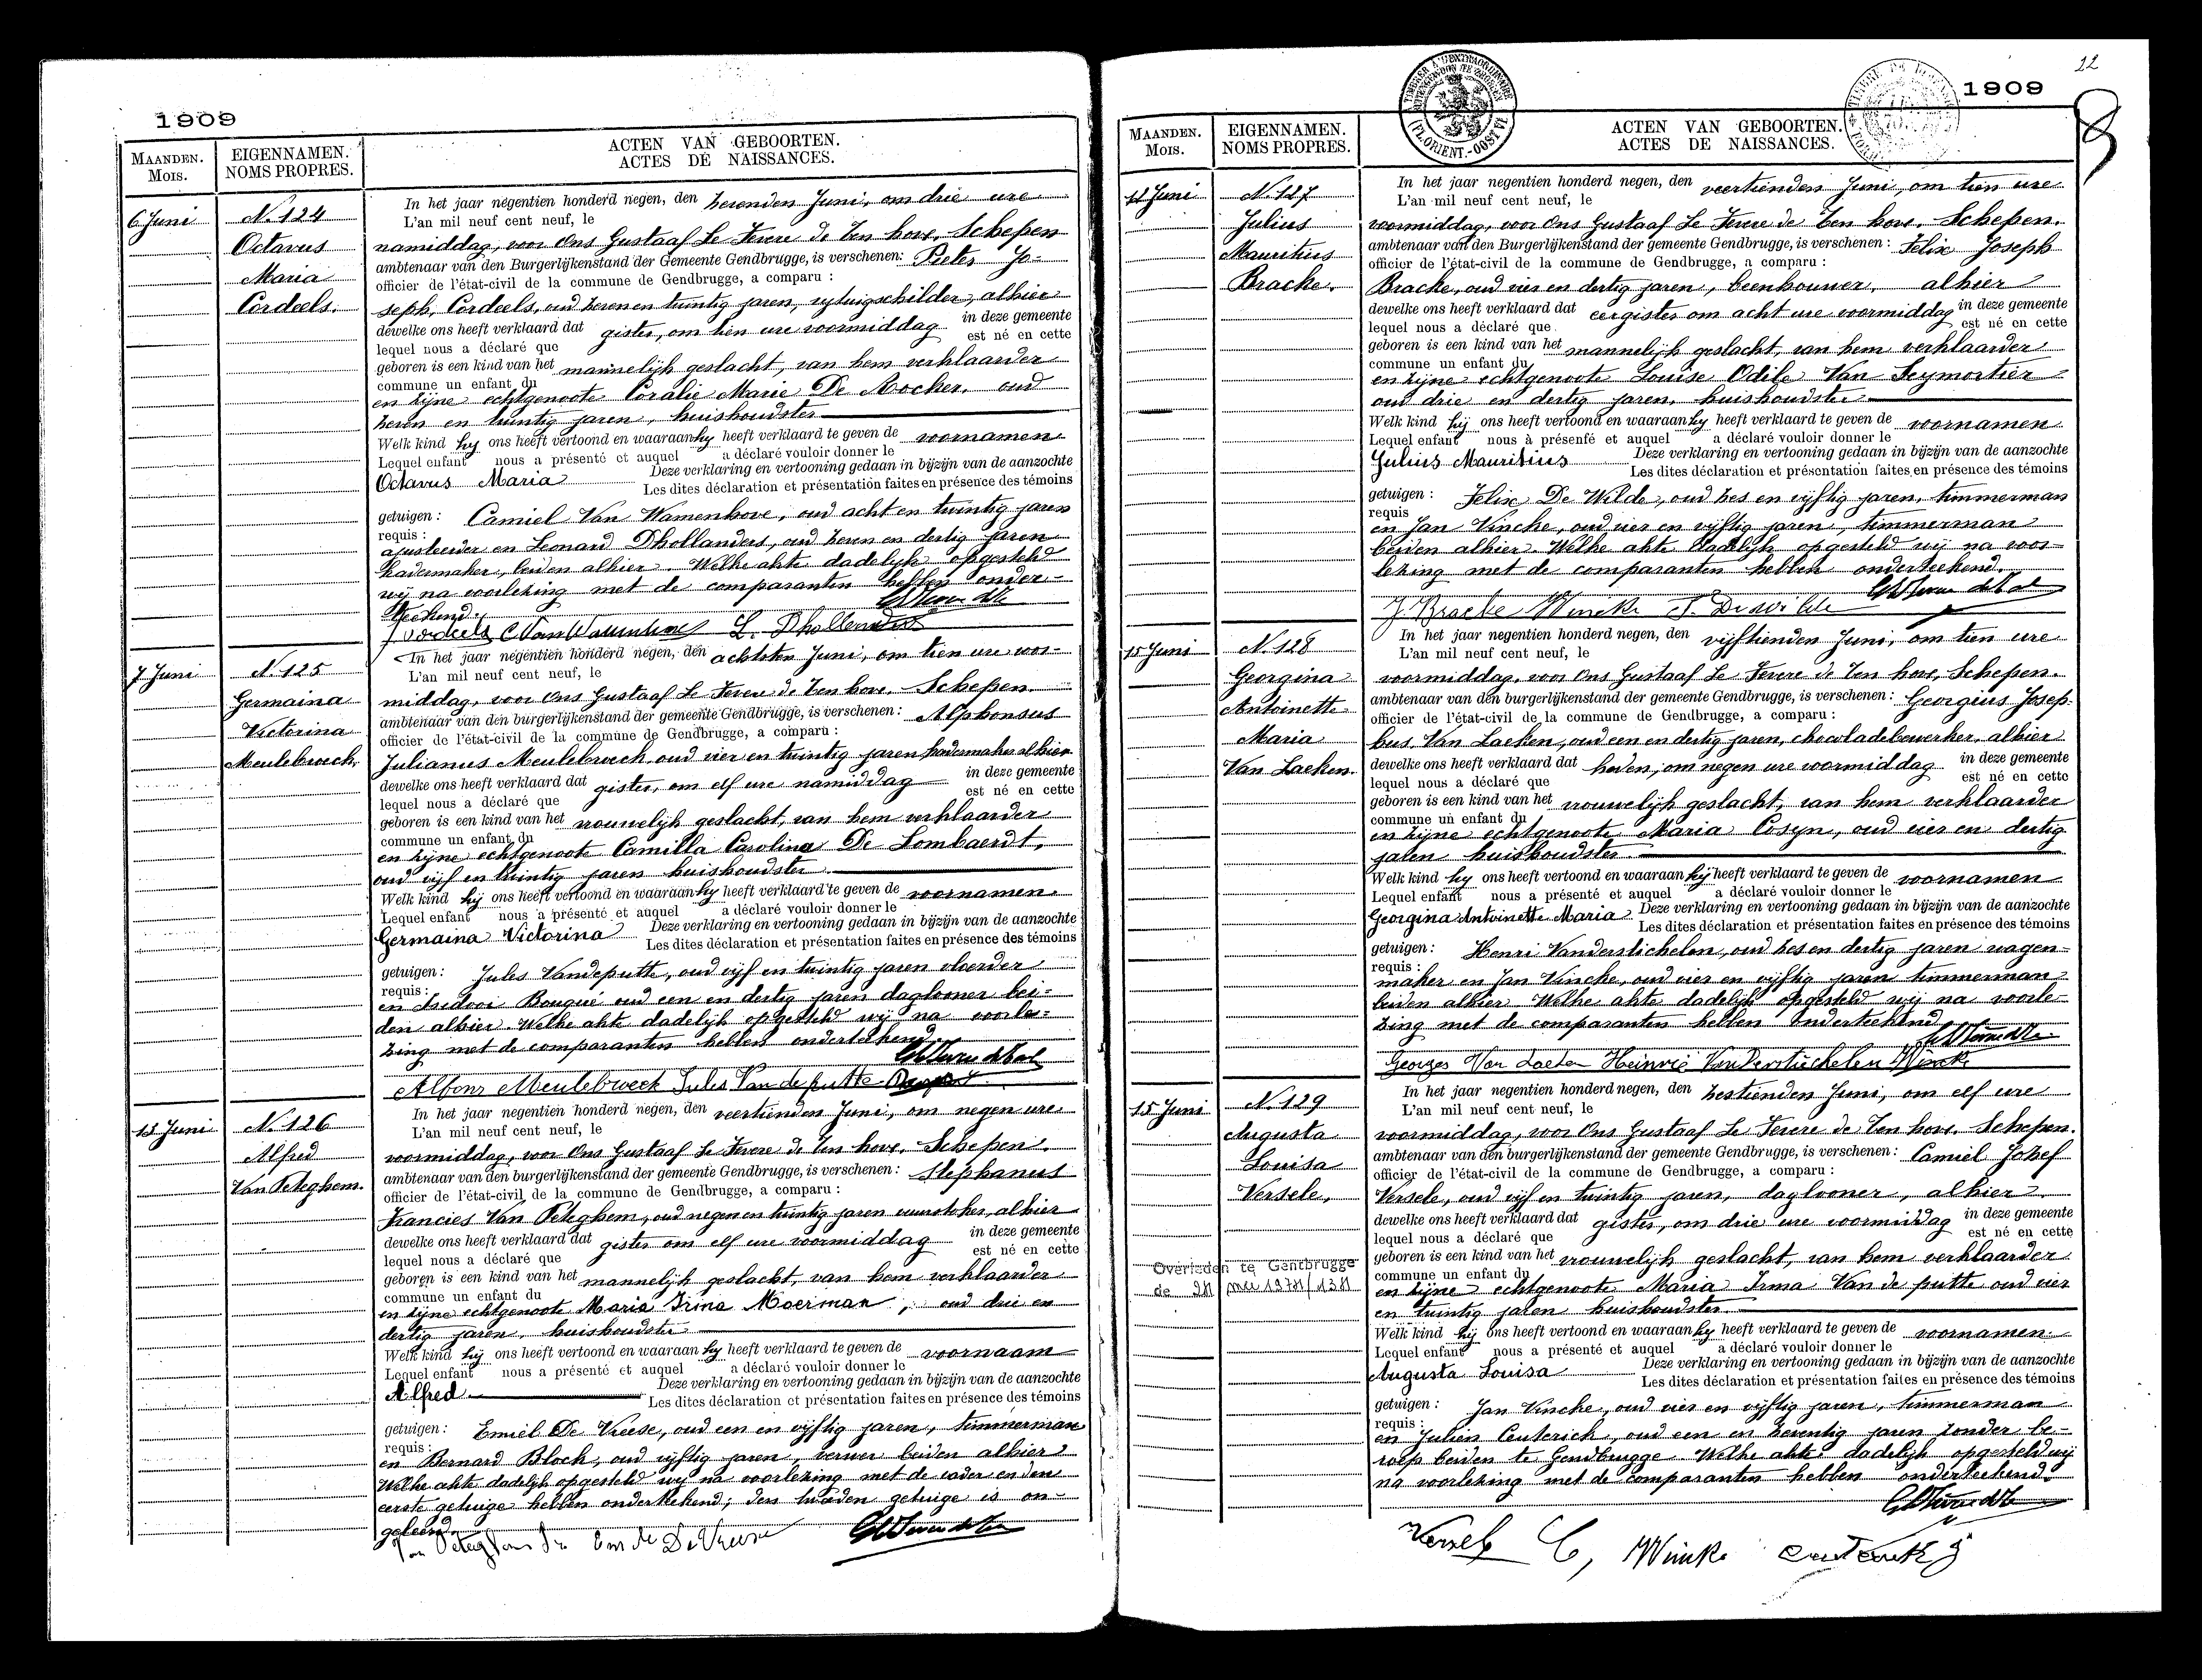 1909
MAANDEN. EIGENNAMEN. ACTEN VAN GEBOORTEN.
MOIS. NOMS PROPRES. ACTES DE NAISSANCES.
6 Juni
N. 124
Octavus
Maria
Cordeels.
In het jaar negentien honderd negen, den zevenden Juni, om drie ure
L'an mil neuf cent neuf, le
namiddag, voor Ons Gustaaf Le Fevere de Ten hove, Schepen
ambtenaar van den Burgerlijkenstand der Gemeente Gendbrugge, is verschenen: Pieter Jo-
officier de l'état-civil de la commune de Gendbrugge, a comparu :
seph, Cordeels, oud zeven en twintig jaren, rytuigschilder, alhier
dewelke ons heeft verklaard dat gister, om tien ure voormiddag in deze gemeente
lequel nous a déclaré que est né en cette
geboren is een kind van het mannelijk geslacht, van hem verklaarder
commune un enfant du
en zijne echtgenoote Coralie Marie De Rocker, oud
zeven en twintig jaren, huishoudster
Welk kind hij ons heeft vertoond en waaraan hij heeft verklaard te geven de voornamen
Lequel enfant nous a présenté et auquel a déclaré vouloir donner le
Octavus Maria Deze verklaring en vertooning gedaan in bijzijn van de aanzochte
Les dites déclaration et présentation faites en présence des témoins
getuigen : Camiel Van Wamenhove, oud acht en twintig jaren
requis :
ajusteerder en Leonard Dhollanders, oud zeven en dertig jaren
kadermaker, beiden alhier. Welke akte dadelijk opgesteld
wij na voorlezing met de comparanten hebben onder-
teekend.
Cordeels C Van Wamenhove L. Dhollander
7 Juni
N. 125
Germaina
Victorina
Meulebroeck.
In het jaar negentien honderd negen, den achtsten Juni, om tien ure voor-
L'an mil neuf cent neuf, le
middag, voor Ons Gustaaf Le Fevere de Ten hove, Schepen.
ambtenaar van den burgerlijkenstand der gemeente Gendbrugge, is verschenen : Alphonsus
officier de l'état-civil de la commune de Gendbrugge, a comparu :
Julianus Meulebroeck, oud vier en twintig jaren, kadermaker alhier
dewelke ons heeft verklaard dat gister, om elf ure namiddag in deze gemeente
lequel nous a déclaré que est né en cette
geboren is een kind van het vrouwelijk geslacht, van hem verklaarder
commune un enfant du
en zijne echtgenoote Camilla Carolina De Lombaerdt,
oud vijf en twintig jaren huishoudster
Welk kind hij ons heeft vertoond en waaraan hij heeft verklaard te geven de voornamen
Lequel enfant nous a présenté et auquel a déclaré vouloir donner le
Germaina Victorina Deze verklaring en vertooning gedaan in bijzijn van de aanzochte
Les dites déclaration et présentation faites en présence des témoins
getuigen : Jules Vandeputte, oud vijf en twintig jaren vloerder
requis :
en Isidoor Bouqué oud een en dertig jaren daglooner bei-
den alhier. Welke akte dadelijk opgesteld wij na voorle-
zing met de comparanten hebben onderteekend.
Alfons Meulebroeck Jules Van de putte
13 Juni
N. 126
Alfred
Van Peteghem.
In het jaar negentien honderd negen, den veertienden Juni, om negen ure
L'an mil neuf cent neuf, le
voormiddag, voor Ons Gustaaf Le Fevere de Ten hove, Schepen.
ambtenaar van den burgerlijkenstand der gemeente Gendbrugge, is verschenen : Stephanus
officier de l'état-civil de la commune de Gendbrugge, a comparu :
Francies Van Peteghem, oud negen en twintig jaren vuurstoker, alhier
dewelke ons heeft verklaard dat gister om elf ure voormiddag in deze gemeente
lequel nous a déclaré que est né en cette
geboren is een kind van het mannelijk geslacht, van hem verklaarder
commune un enfant du
en zijne echtgenoote Maria Irina Moerman, oud drie en
dertig jaren, huishoudster
Welk kind hij ons heeft vertoond en waaraan hij heeft verklaard te geven de voornaam
Lequel enfant nous a présenté et auquel a déclaré vouloir donner le
Alfred. Deze verklaring en vertooning gedaan in bijzijn van de aanzochte
Les dites déclaration et présentation faites en présence des témoins
getuigen : Emiel De Vreese, oud een en vijftig jaren, timmerman
requis :
en Bernard Bloch, oud vijftig jaren, verver beiden alhier
Welke akte dadelijk opgesteld wij na voorlezing met de vader en den
eerste getuige hebben onderteekend; den tweeden getuige is on-
geleerd.
Van Peteghem De Vreese
22
1909
MAANDEN. EIGENNAMEN. ACTEN VAN GEBOORTEN.
MOIS. NOMS PROPRES. ACTES DE NAISSANCES.
12 Juni
N. 127
Julius
Mauritius
Bracke.
In het jaar negentien honderd negen, den veertienden Juni, om tien ure
L'an mil neuf cent neuf, le
voormiddag, voor Ons Gustaaf Le Fevere de Ten hove, Schepen.
ambtenaar van den Burgerlijkenstand der gemeente Gendbrugge, is verschenen : Felix Joseph
officier de l'état-civil de la commune de Gendbrugge, a comparu :
Bracke, oud vier en dertig jaren, beenhouwer, alhier
dewelke ons heeft verklaard dat eergister om acht ure voormiddag in deze gemeente
lequel nous a déclaré que est né en cette
geboren is een kind van het mannelijk geslacht, van hem verklaarder
commune un enfant du
en zijne echtgenoote Louise Odile Van Seymortier
oud drie en dertig jaren, huishoudster
Welk kind hij ons heeft vertoond en waaraan hij heeft verklaard te geven de voornamen
Lequel enfant nous à présenté et auquel a déclaré vouloir donner le
Julius Mauritius Deze verklaring en vertooning gedaan in bijzijn van de aanzochte
Les dites déclaration et présentation faites en présence des témoins
getuigen : Felix De Wilde, oud zes en vijftig jaren, timmerman
requis
en Jan Vincke, oud vier en vijftig jaren, timmerman
beiden alhier. Welke akte dadelijk opgesteld wij na voor-
lezing met de comparanten hebben onderteekend.
J. Bracke Wincke F. De wilde
15 Juni
N. 128
Georgina
Antoinette
Maria
Van Laeken.
In het jaar negentien honderd negen, den vijftienden Juni, om tien ure
L'an mil neuf cent neuf, le
voormiddag, voor Ons Gustaaf Le Fevere de Ten hove, Schepen.
ambtenaar van den burgerlijkenstand der gemeente Gendbrugge, is verschenen : Georgius Josep-
officier de l'état-civil de la commune de Gendbrugge, a comparu :
hus Van Laeken, oud een en dertig jaren, chocoladebewerker, alhier
dewelke ons heeft verklaard dat heden, om negen ure voormiddag in deze gemeente
lequel nous a déclaré que est né en cette
geboren is een kind van het vrouwelijk geslacht, van hem verklaarder
commune un enfant du
en zijne echtgenoote Maria Cosyn, oud vier en dertig
jaren huishoudster.
Welk kind hij ons heeft vertoond en waaraan hij heeft verklaard te geven de voornamen
Lequel enfant nous a présenté et auquel a déclaré vouloir donner le
Georgina Antoinette Maria Deze verklaring en vertooning gedaan in bijzijn van de aanzochte
Les dites déclaration et présentation faites en présence des témoins
getuigen : Henri Vanderstichelen, oud zes en dertig jaren wagen-
requis :
maker en Jan Vincke, oud vier en vijftig jaren timmerman
beiden alhier Welke akte dadelijk opgesteld wij na voorle-
zing met de comparanten hebben onderteekend
Georges Van Laeken Heinrie Vanderstichelen Wincke
15 Juni
N. 129
Augusta
Louisa
Versele,
Overleden te Gentbrugge
In het jaar negentien honderd negen, den zestienden Juni, om elf ure
L'an mil neuf cent neuf, le
voormiddag, voor Ons Gustaaf Le Fevere de Ten hove, Schepen.
ambtenaar van den burgerlijkenstand der gemeente Gendbrugge, is verschenen : Camiel Jozef
officier de l'état-civil de la commune de Gendbrugge, a comparu :
Versele, oud vijf en twintig jaren, daglooner, alhier
dewelke ons heeft verklaard dat gister, om drie ure voormiddag in deze gemeente
lequel nous a déclaré que est né en cette
geboren is een kind van het vrouwelijk geslacht, van hem verklaarder
commune un enfant du
en zijne echtgenoote Maria Irma Van de putte oud vier
en twintig jaren huishoudster.
Welk kind hij ons heeft vertoond en waaraan hij heeft verklaard te geven de voornamen
Lequel enfant nous a présenté et auquel a déclaré vouloir donner le
Augusta Louisa Deze verklaring en vertooning gedaan in bijzijn van de aanzochte
Les dites déclaration et présentation faites en présence des témoins
getuigen : Jan Vincke, oud vier en vijftig jaren, timmerman
requis :
en Julien Ceuterick, oud een en zeventig jaren zonder be-
roep beiden te Gendbrugge Welke akte dadelijk opgesteld wij
na voorlezing met de comparanten hebben onderteekend.
Versele C, Wincke